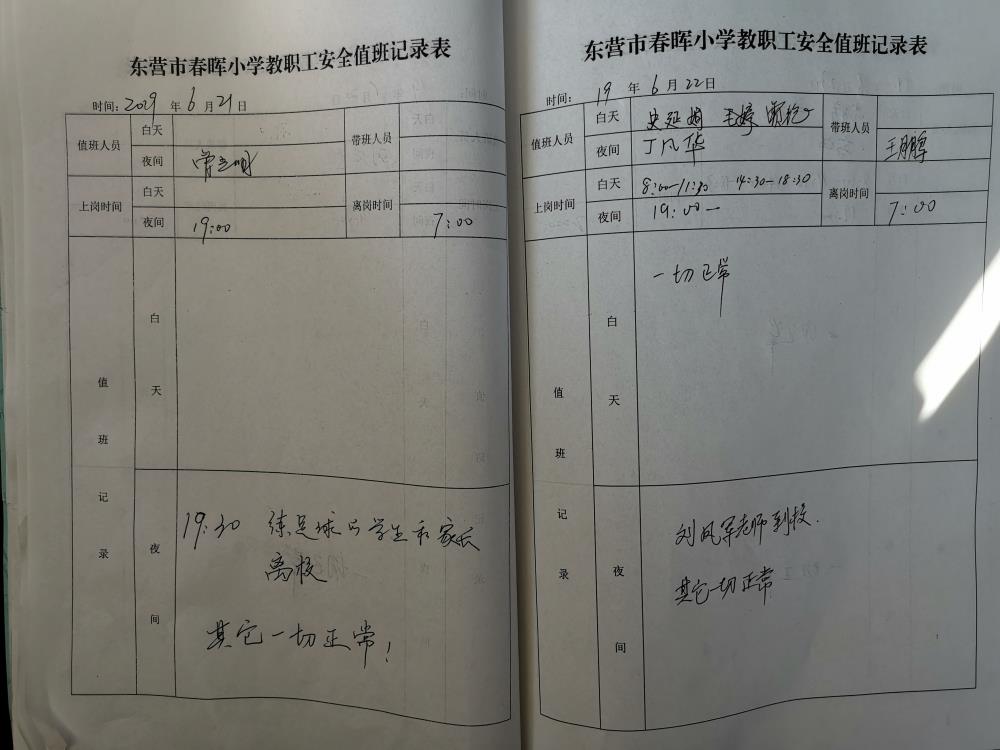 东营市春晖小学教职工安全值班记录表
时间：2019 年 6 月 21 日
值班人员 白天 带班人员
夜间 曾立明
上岗时间 白天 离岗时间
夜间 19:00 7:00
值班记录
白天
夜间
19:30 练足球的学生和家长
离校
其它一切正常！
东营市春晖小学教职工安全值班记录表
时间： 19 年 6 月 22 日
值班人员 白天 史延娟 王婷 带班人员
夜间 丁凡华 王鹏
上岗时间 白天 8:00-11:30 14:30-18:30 离岗时间
夜间 19:00- 7:00
值班记录
白天
一切正常
夜间
刘凤军老师到校.
其它一切正常